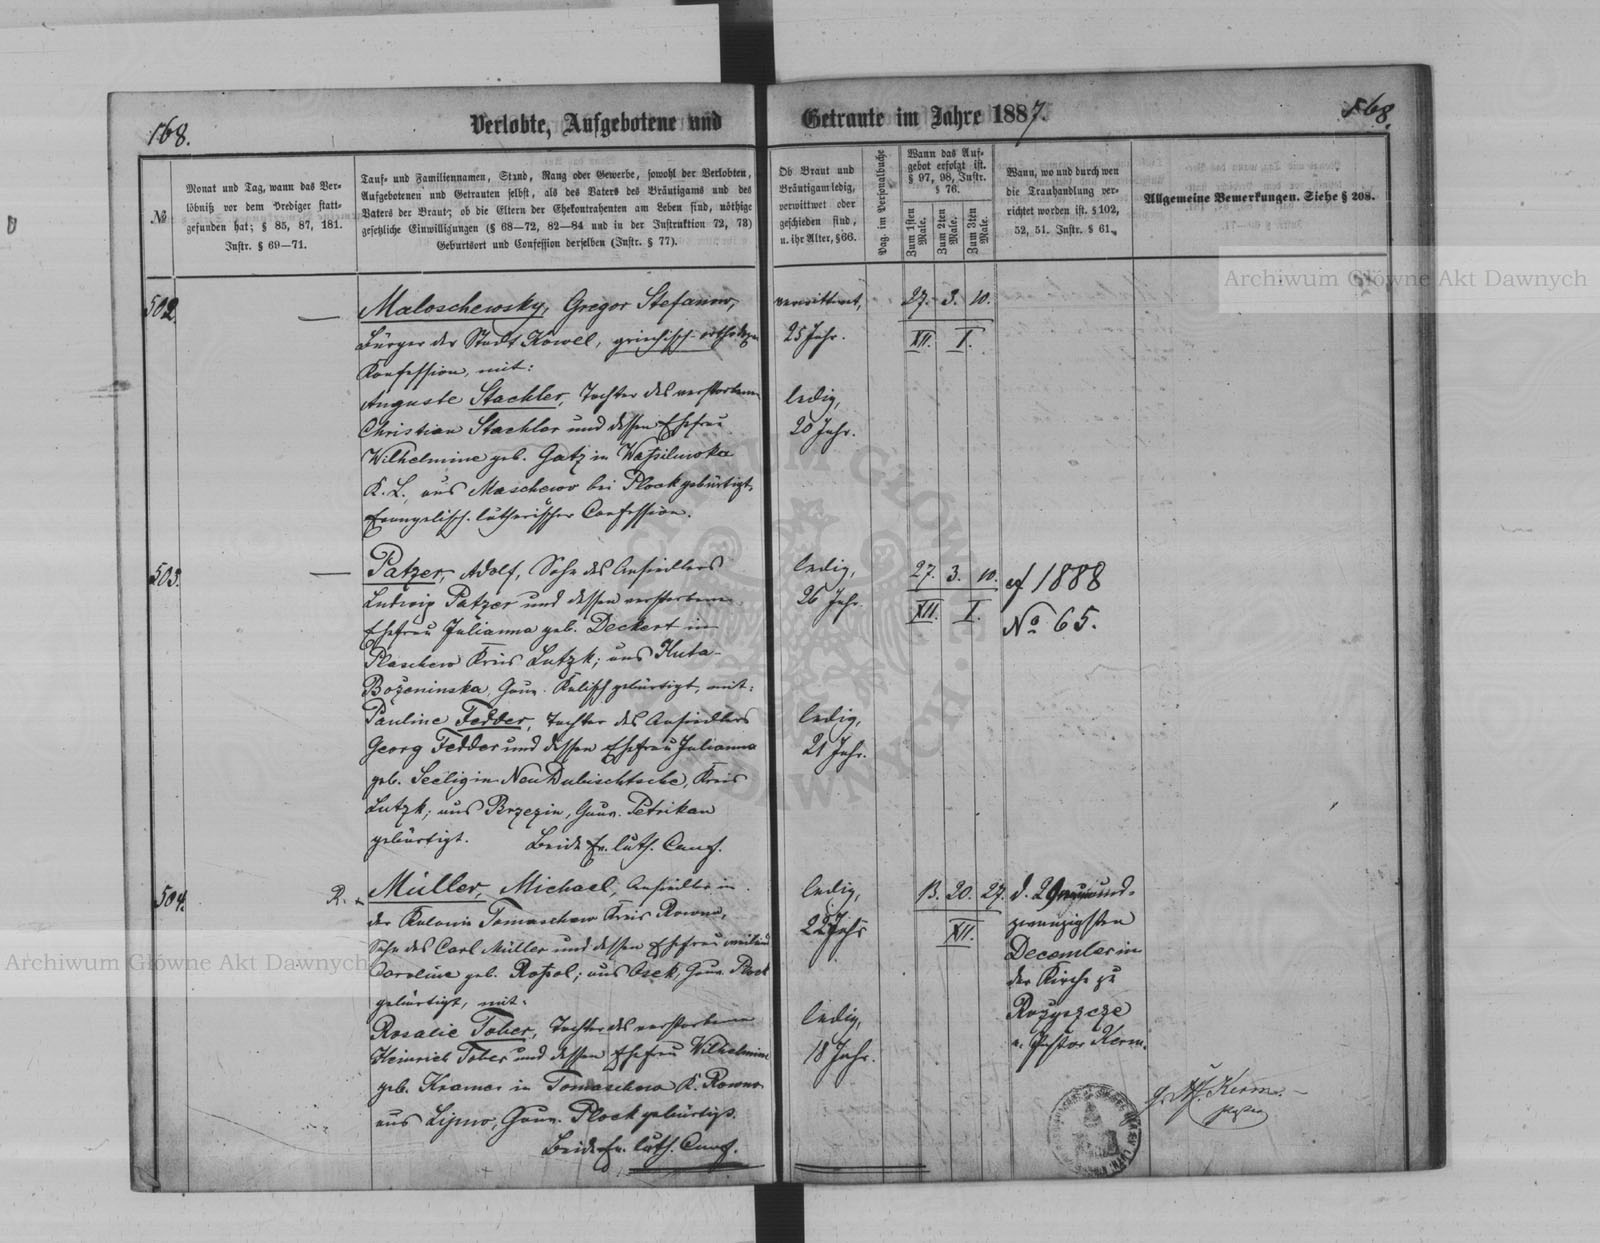 168.
Verlobte, Aufgebotene und
Getraute im Jahre 1887.
168.
№
Monat und Tag, wann das Ver-
löbniß vor dem Prediger statt-
gefunden hat; § 85, 87, 181.
Instr. § 69—71.
Tauf- und Familiennamen, Stand, Rang oder Gewerbe, sowohl der Verlobten,
Aufgebotenen und Getrauten selbst, als des Vaters des Bräutigams und des
Vaters der Braut; ob die Eltern der Ehekontrahenten am Leben sind, nöthige
gesetzliche Einwilligungen (§ 68—72, 82—84 und in der Instruktion 72, 73)
Geburtsort und Confession derselben (Instr. § 77).
Ob Braut und
Bräutigam ledig,
verwittwet oder
geschieden sind,
u. ihr Alter, §66.
Pag. im Personalbuche
Wann das Auf-
gebot erfolgt ist.
§ 97, 98, Instr.
§ 76.
Zum 1sten Male.
Zum 2ten Male.
Zum 3ten Male.
Wann, wo und durch wen
die Trauhandlung ver-
richtet worden ist. § 102,
52, 51. Instr. § 61.
Allgemeine Bemerkungen. Siehe § 208.
502.
Maloschewsky, Gregor Stefanow,
Bürger der Stadt Kowel, griechisch-orthodoxer
Konfession, mit:
Auguste Stachler, Tochter des verstorbenen
Christian Stachler und dessen Ehefrau
Wilhelmine geb. Gatz in Waßilewska
K. L., aus Maschewo bei Plock gebürtigt,
Evangelisch-lutherischer Confession.
verwittwet,
25 Jahr.
ledig,
20 Jahr.
27. 3. 10.
XII. I.
503.
Patzer, Adolf, Sohn des Ansiedlers
Ludwig Patzer und dessen verstorbenen
Ehefrau Julianna geb. Deckert in
Plaschew Kreis Lutzk; aus Huta-
Boženinska, Gouv. Kalisch gebürtigt, mit:
Pauline Fedder, Tochter des Ansiedlers
Georg Fedder und dessen Ehefrau Julianna
geb. Seelig in Neu Dubischtsche, Kreis
Lutzk; aus Brzezin, Gouv. Petrikau
gebürtigt. Beide Ev. luth. Conf.
ledig,
26 Jahr.
ledig,
21 Jahr.
27. 3. 10.
XII. I.
cf 1888
No 65.
504.
R.
Müller, Michael, Ansiedler in
der Kolonie Tomaschew Kreis Rowno,
Sohn des Carl Müller und dessen Ehefrau
Caroline geb. Roßol; aus Osek, Gouv. Plock
gebürtigt, mit:
Rosalie Tober, Tochter des verstorbenen
Heinrich Tober und dessen Ehefrau Wilhelmine
geb. Kramer in Tomaschew K. Rowno
aus Lipno, Gouv. Plock gebürtigt.
Beide Ev. luth. Conf.
ledig,
22 Jahr
ledig,
18 Jahr.
13. 20. 27.
XII.
d. 29 neunund-
zwanzigsten
December in
der Kirche zu
Rozyszcze
v. Pastor Kerm.
Kerm.
Pastor
Archiwum Główne Akt Dawnych
Archiwum Główne Akt Dawnych
ARCHIWUM GŁÓWNE AKT DAWNYCH